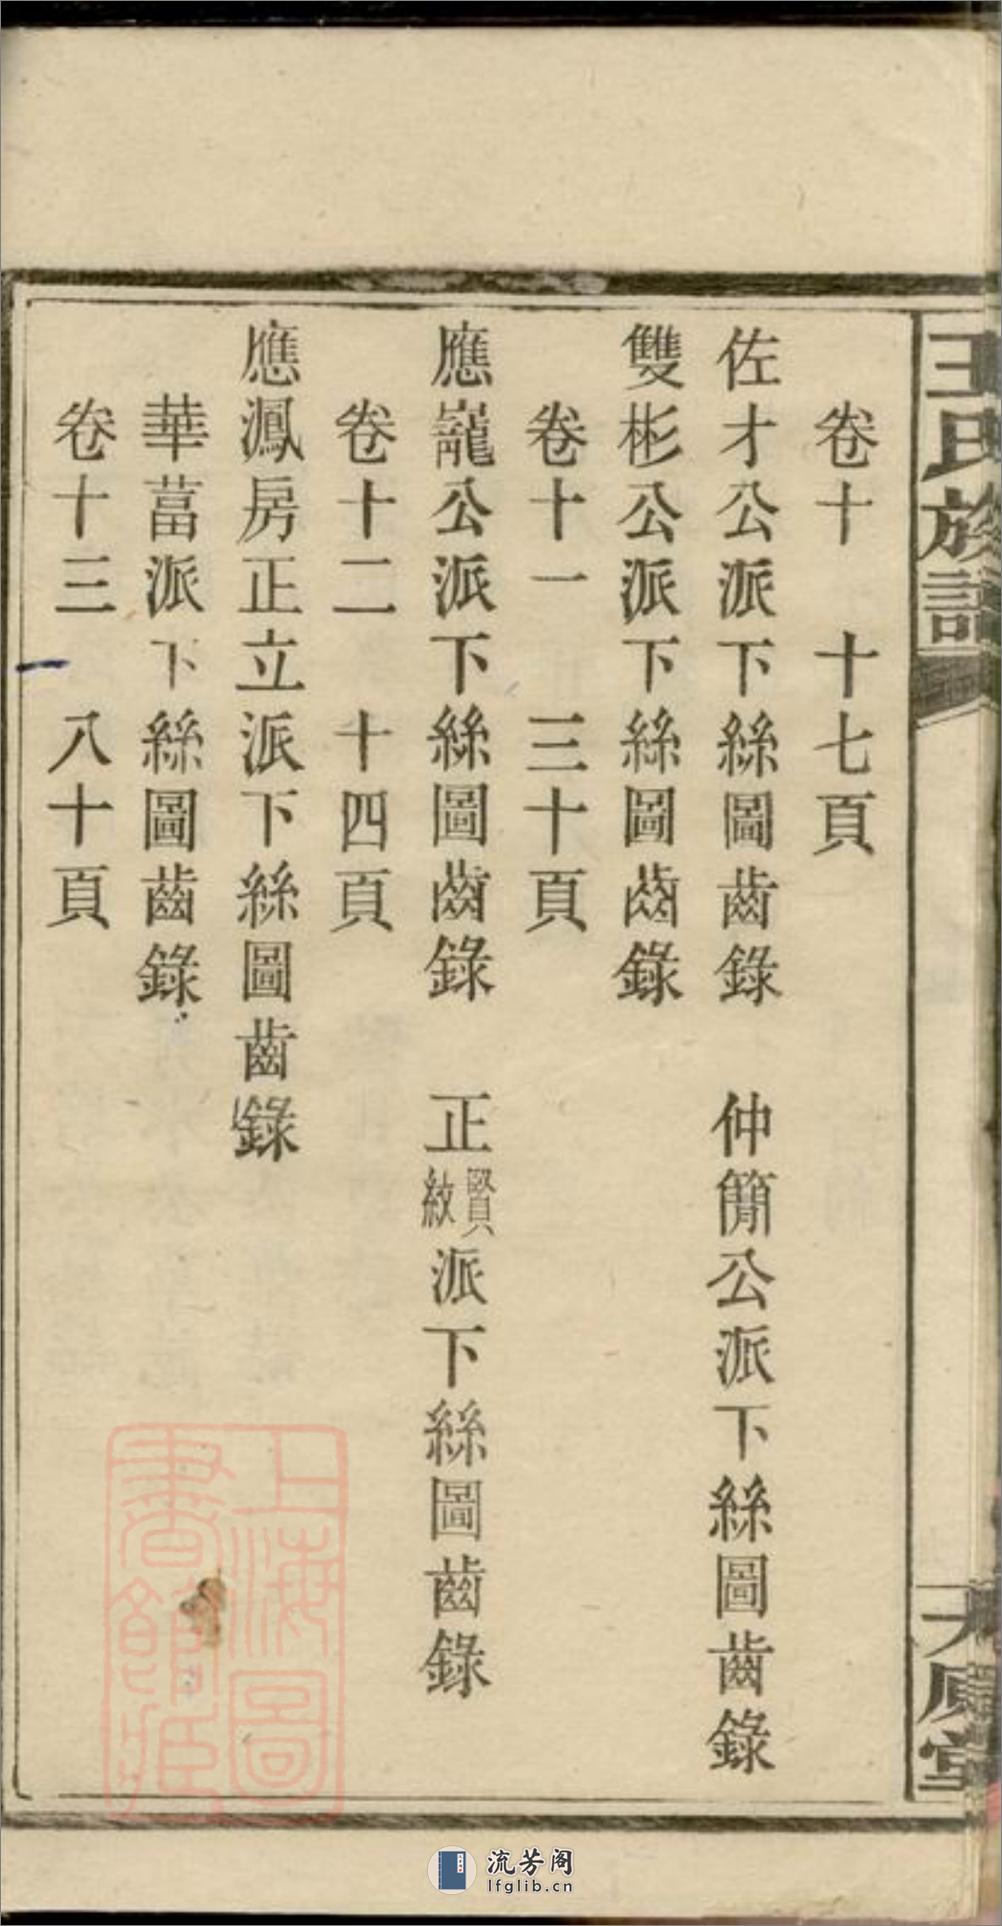 王氏族譜
大原堂
卷十 十七頁
佐才公派下絲圖齒錄 仲簡公派下絲圖齒錄
雙彬公派下絲圖齒錄
卷十一 三十頁
應巃公派下絲圖齒錄 正賢紋派下絲圖齒錄
卷十二 十四頁
應鳳房正立派下絲圖齒錄
華葍派下絲圖齒錄
卷十三 八十頁
上海圖書館藏
流芳阁
lfglib.cn